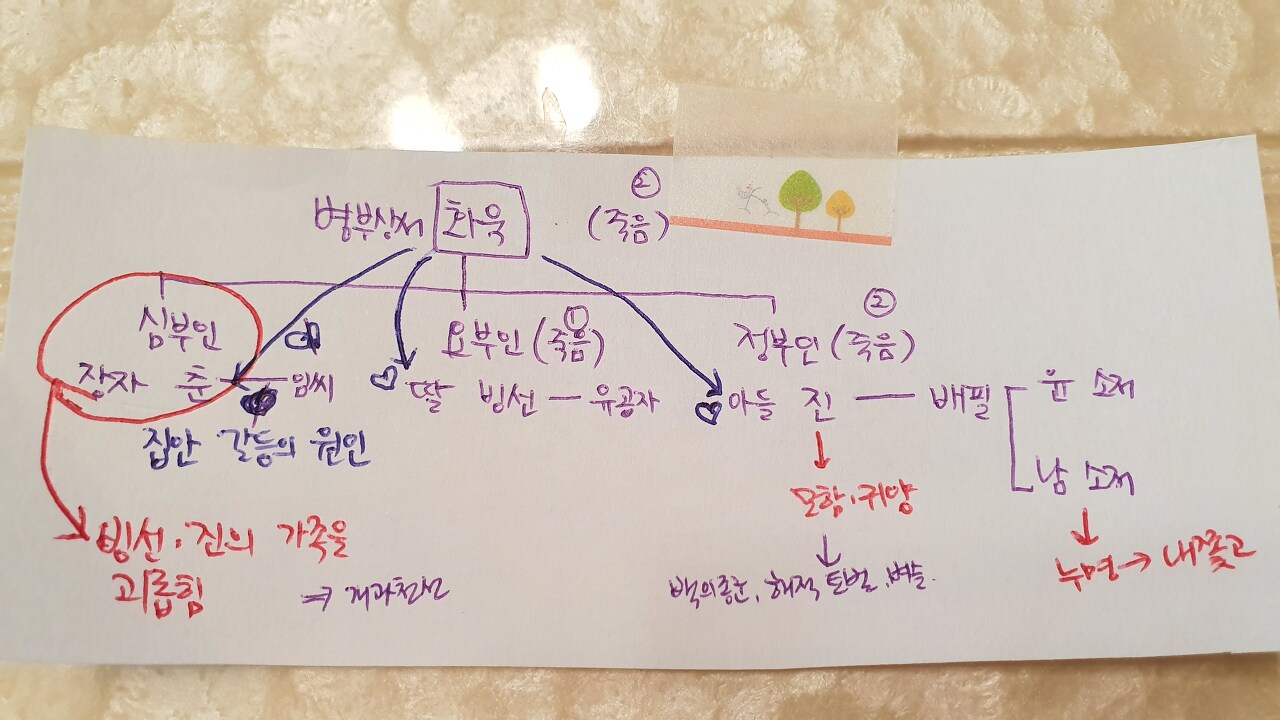 ②
병부상서 화욱 (죽음)
심부인
장자 춘 — 임씨
집안 갈등의 원인
①
요부인 (죽음)
♡ 딸 빙선 — 유공자
②
정부인 (죽음)
♡ 아들 진 — 배필
윤 소저
남 소저
빙선·진의 가족을
괴롭힘
⇒ 개과천선
↓
모함·귀양
↓
백의종군, 해적 토벌, 벼슬.
↓
누명→ 내쫓고